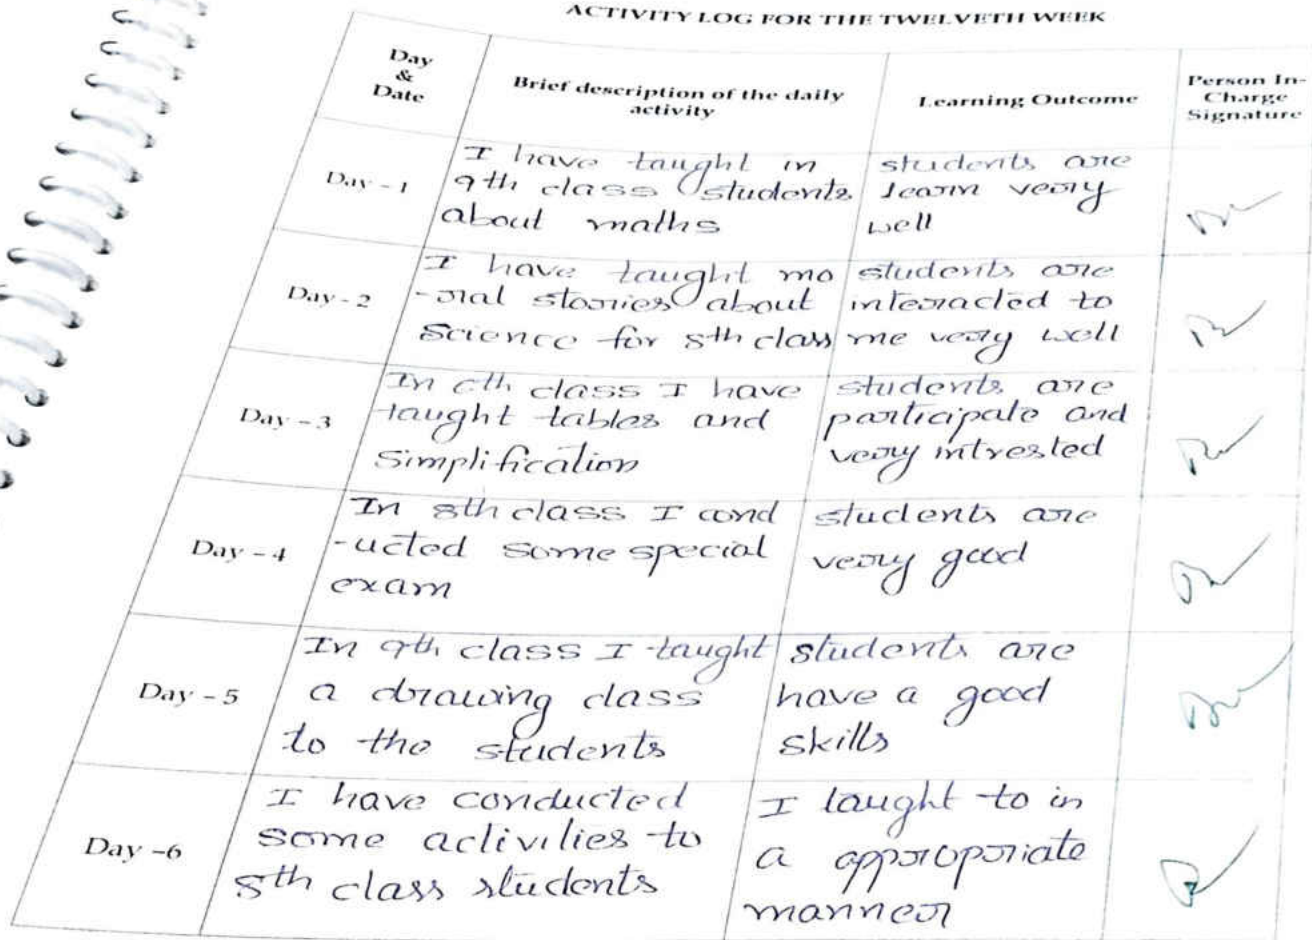 ACTIVITY LOG FOR THE TWELVETH WEEK
Day
&
Date
Brief description of the daily
activity
Learning Outcome
Person In-
Charge
Signature
Day - 1
I have taught in
9th class students
about maths
students are
learn very
well
Day - 2
I have taught mo
-ral stories about
Science for 8th class
students are
interacted to
me very well
Day - 3
In 6th class I have
taught tables and
Simplification
students are
participate and
very intrested
Day - 4
In 8th class I cond
-ucted some special
exam
students are
very good
Day - 5
In 9th class I taught
a drawing class
to the students
students are
have a good
skills
Day -6
I have conducted
some activities to
8th class students
I taught to in
a apporopriate
manner